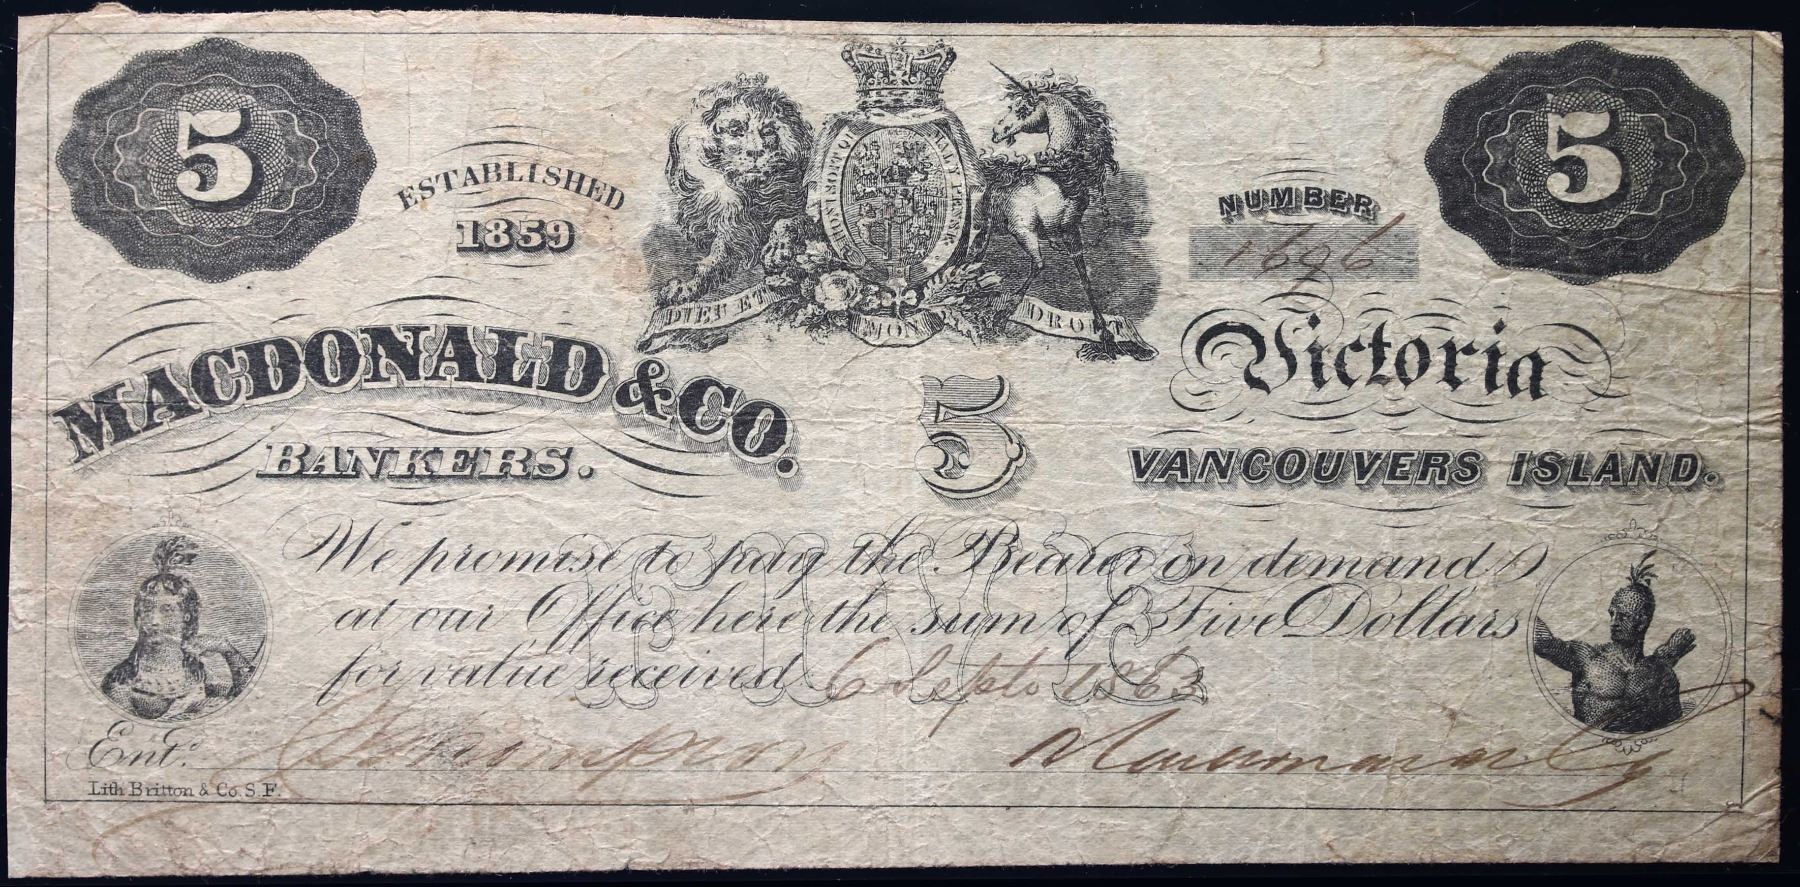 5
5
ESTABLISHED
1859
HONI SOIT QUI MAL Y PENSE
DIEU ET MON DROIT
NUMBER
1696
MACDONALD & CO.
BANKERS.
5
Victoria
VANCOUVERS ISLAND.
We promise to pay the Bearer on demand
at our Office here the sum of Five Dollars
for value received 6 Septr 1863
FIVE
Entd. Thompson
Lith Britton & Co. S. F.